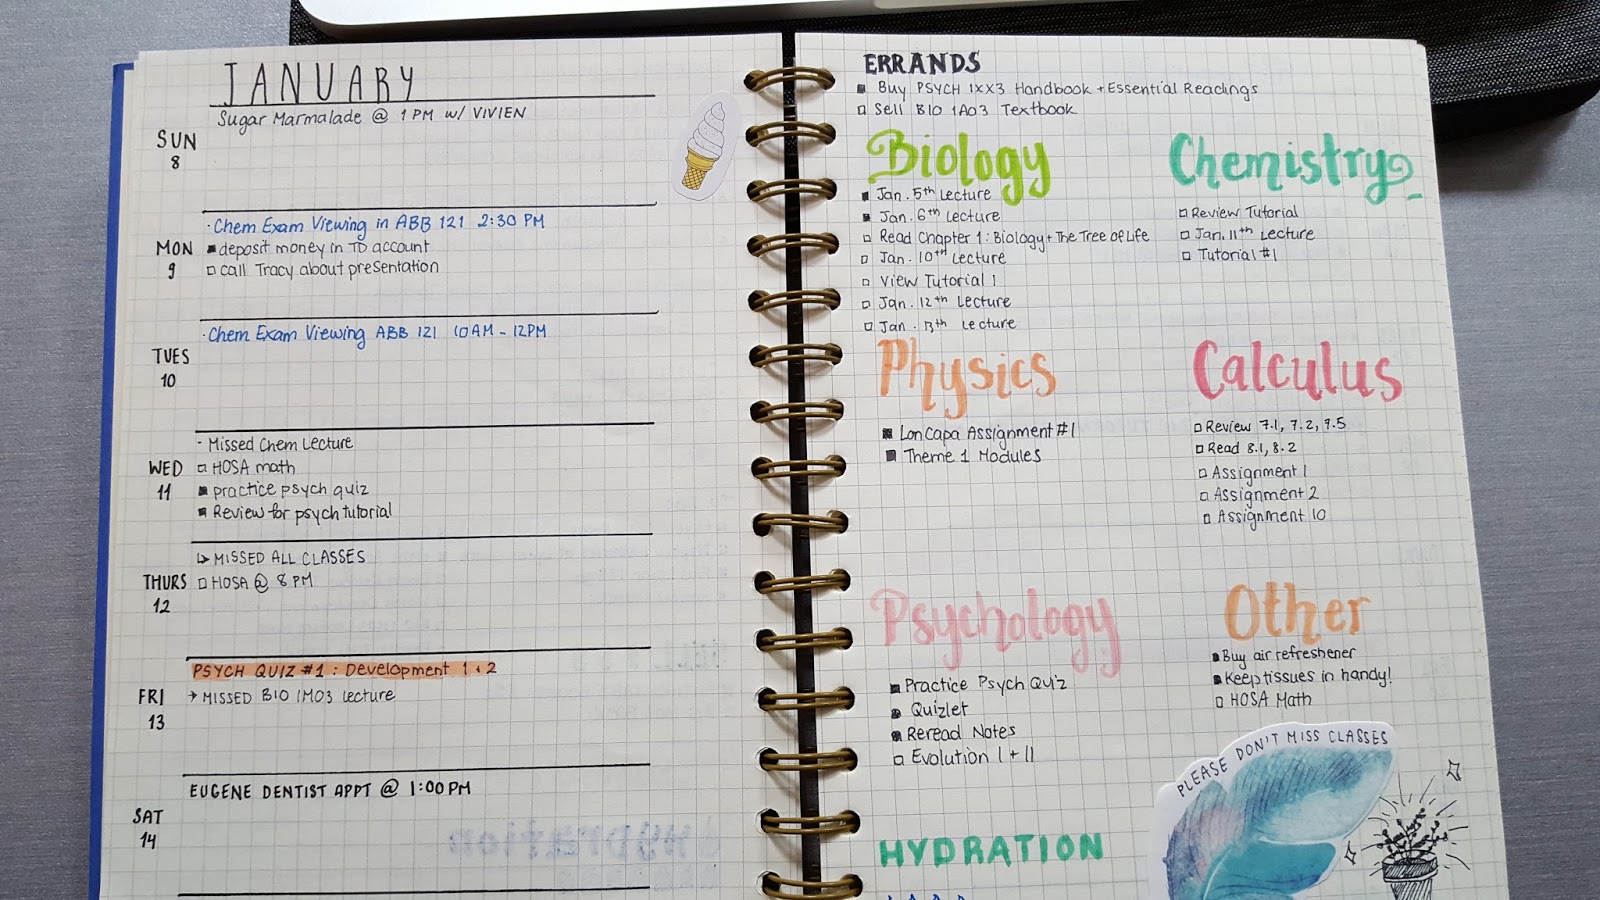 JANUARY
Sugar Marmalade @ 1 PM w/ VIVIEN
SUN
8
· Chem Exam Viewing in ABB 121 2:30 PM
MON
9
deposit money in TD account
call Tracy about presentation
· Chem Exam Viewing ABB 121 10AM - 12PM
TUES
10
- Missed Chem Lecture
WED
11
HOSA math
practice psych quiz
Review for psych tutorial
↳ MISSED ALL CLASSES
THURS
12
HOSA @ 8 PM
PSYCH QUIZ #1 : Development 1 + 2
FRI
13
→ MISSED BIO 1M03 lecture
EUGENE DENTIST APPT @ 1:00 PM
SAT
14
ERRANDS
Buy PSYCH 1XX3 Handbook + Essential Readings
Sell BIO 1A03 Textbook
Biology
Jan. 5th Lecture
Jan. 6th Lecture
Read Chapter 1: Biology + The Tree of Life
Jan. 10th Lecture
View Tutorial 1
Jan. 12th Lecture
Jan. 13th Lecture
Chemistry
Review Tutorial
Jan. 11th Lecture
Tutorial #1
Physics
LonCapa Assignment #1
Theme 1 Modules
Calculus
Review 7.1, 7.2, 7.5
Read 8.1, 8.2
Assignment 1
Assignment 2
Assignment 10
Psychology
Practice Psych Quiz
Quizlet
Reread Notes
Evolution I + II
Other
Buy air refreshener
Keep tissues in handy!
HOSA Math
PLEASE DON'T MISS CLASSES
HYDRATION